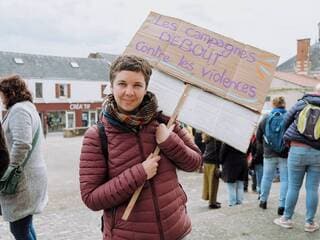 CREA'TIF
Les Campagnes
DEBOUT
contre les violences